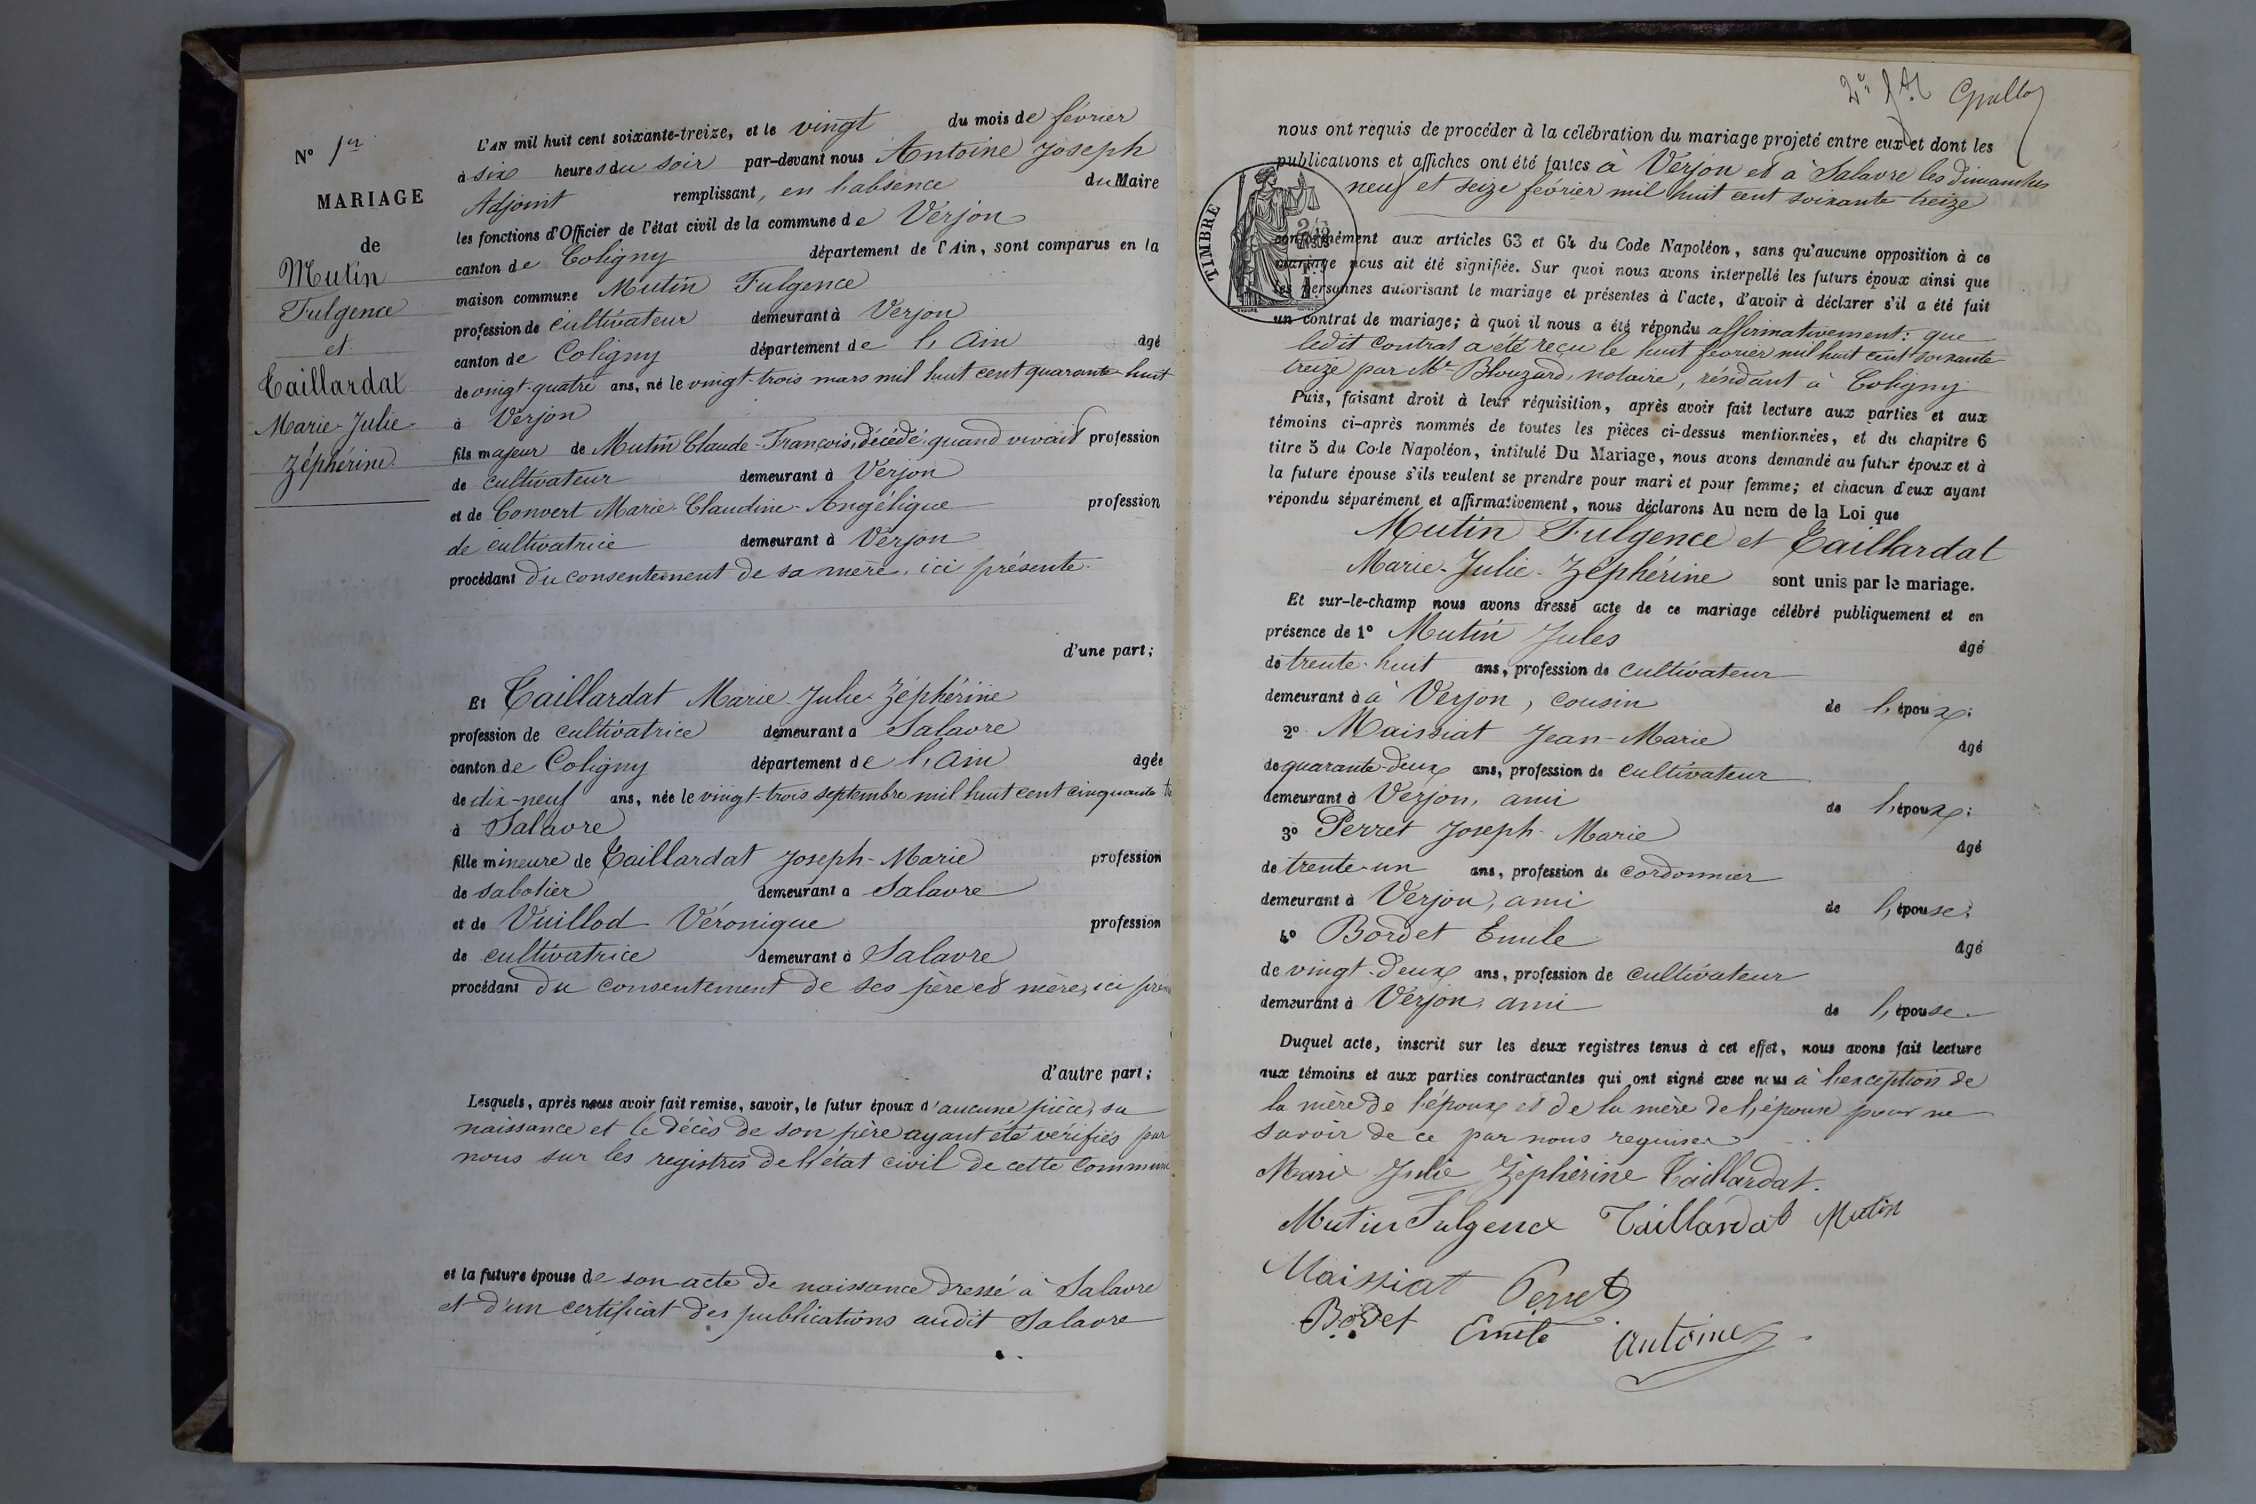 N° 1er
MARIAGE
de
Mutin
Fulgence
et
Taillardat
Marie-Julie-
Zéphérine
L'AN mil huit cent soixante-treize, et le vingt du mois de février
à six heures du soir par-devant nous Antoine Joseph
Adjoint remplissant, en l'absence du Maire
les fonctions d'Officier de l'état civil de la commune de Verjon
canton de Coligny département de l'Ain, sont comparus en la
maison commune Mutin Fulgence
profession de cultivateur demeurant à Verjon
canton de Coligny département de l'Ain âgé
de vingt-quatre ans, né le vingt-trois mars mil huit cent quarante-huit
à Verjon
fils majeur de Mutin Claude-François, décédé, quand vivait profession
de cultivateur demeurant à Verjon
et de Convert Marie-Claudine-Angélique profession
de cultivatrice demeurant à Verjon
procédant du consentement de sa mère, ici présente.
d'une part;
Et Taillardat Marie-Julie-Zéphérine
profession de cultivatrice demeurant à Salavre
canton de Coligny département de l'Ain âgée
de dix-neuf ans, née le vingt-trois septembre mil huit cent cinquante
à Salavre
fille mineure de Taillardat Joseph-Marie profession
de sabotier demeurant à Salavre
et de Vuillod Véronique profession
de cultivatrice demeurant à Salavre
procédant du consentement de ses père et mère, ici
d'autre part;
Lesquels, après nous avoir fait remise, savoir, le futur époux d'aucune pièce, sa
naissance et le décès de son père ayant été vérifiés par
nous sur les registres de l'état civil de cette commune
et la future épouse de son acte de naissance dressé à Salavre
et d'un certificat des publications audit Salavre
2e
nous ont requis de procéder à la célébration du mariage projeté entre eux et dont les
publications et affiches ont été faites à Verjon et à Salavre les dimanches
neuf et seize février mil huit cent soixante treize
TIMBRE
conformément aux articles 63 et 64 du Code Napoléon, sans qu'aucune opposition à ce
mariage nous ait été signifiée. Sur quoi nous avons interpellé les futurs époux ainsi que
les personnes autorisant le mariage et présentes à l'acte, d'avoir à déclarer s'il a été fait
un contrat de mariage; à quoi il nous a été répondu affirmativement: que
ledit contrat a été reçu le huit février mil huit cent soixante
treize par Me Blouzard, notaire, résidant à Coligny
Puis, faisant droit à leur réquisition, après avoir fait lecture aux parties et aux
témoins ci-après nommés de toutes les pièces ci-dessus mentionnées, et du chapitre 6
titre 5 du Code Napoléon, intitulé Du Mariage, nous avons demandé au futur époux et à
la future épouse s'ils veulent se prendre pour mari et pour femme; et chacun d'eux ayant
répondu séparément et affirmativement, nous déclarons Au nom de la Loi que
Mutin Fulgence et Taillardat
Marie-Julie-Zéphérine sont unis par le mariage.
Et sur-le-champ nous avons dressé acte de ce mariage célébré publiquement et en
présence de 1° Mutin Jules âgé
de trente-huit ans, profession de cultivateur
demeurant à à Verjon, cousin de l'époux;
2° Maissiat Jean-Marie âgé
de quarante-deux ans, profession de cultivateur
demeurant à Verjon, ami de l'époux;
3° Perret Joseph-Marie âgé
de trente-un ans, profession de cordonnier
demeurant à Verjon, ami de l'épouse;
4° Bordet Emile âgé
de vingt-deux ans, profession de cultivateur
demeurant à Verjon, ami de l'épouse.
Duquel acte, inscrit sur les deux registres tenus à cet effet, nous avons fait lecture
aux témoins et aux parties contractantes qui ont signé avec nous à l'exception de
la mère de l'époux et de la mère de l'épouse pour ne
savoir de ce par nous requises
Marie Julie Zéphérine Taillardat.
Mutin Fulgence Taillardat Mutin
Maissiat Perret
Bordet Emile Antoine